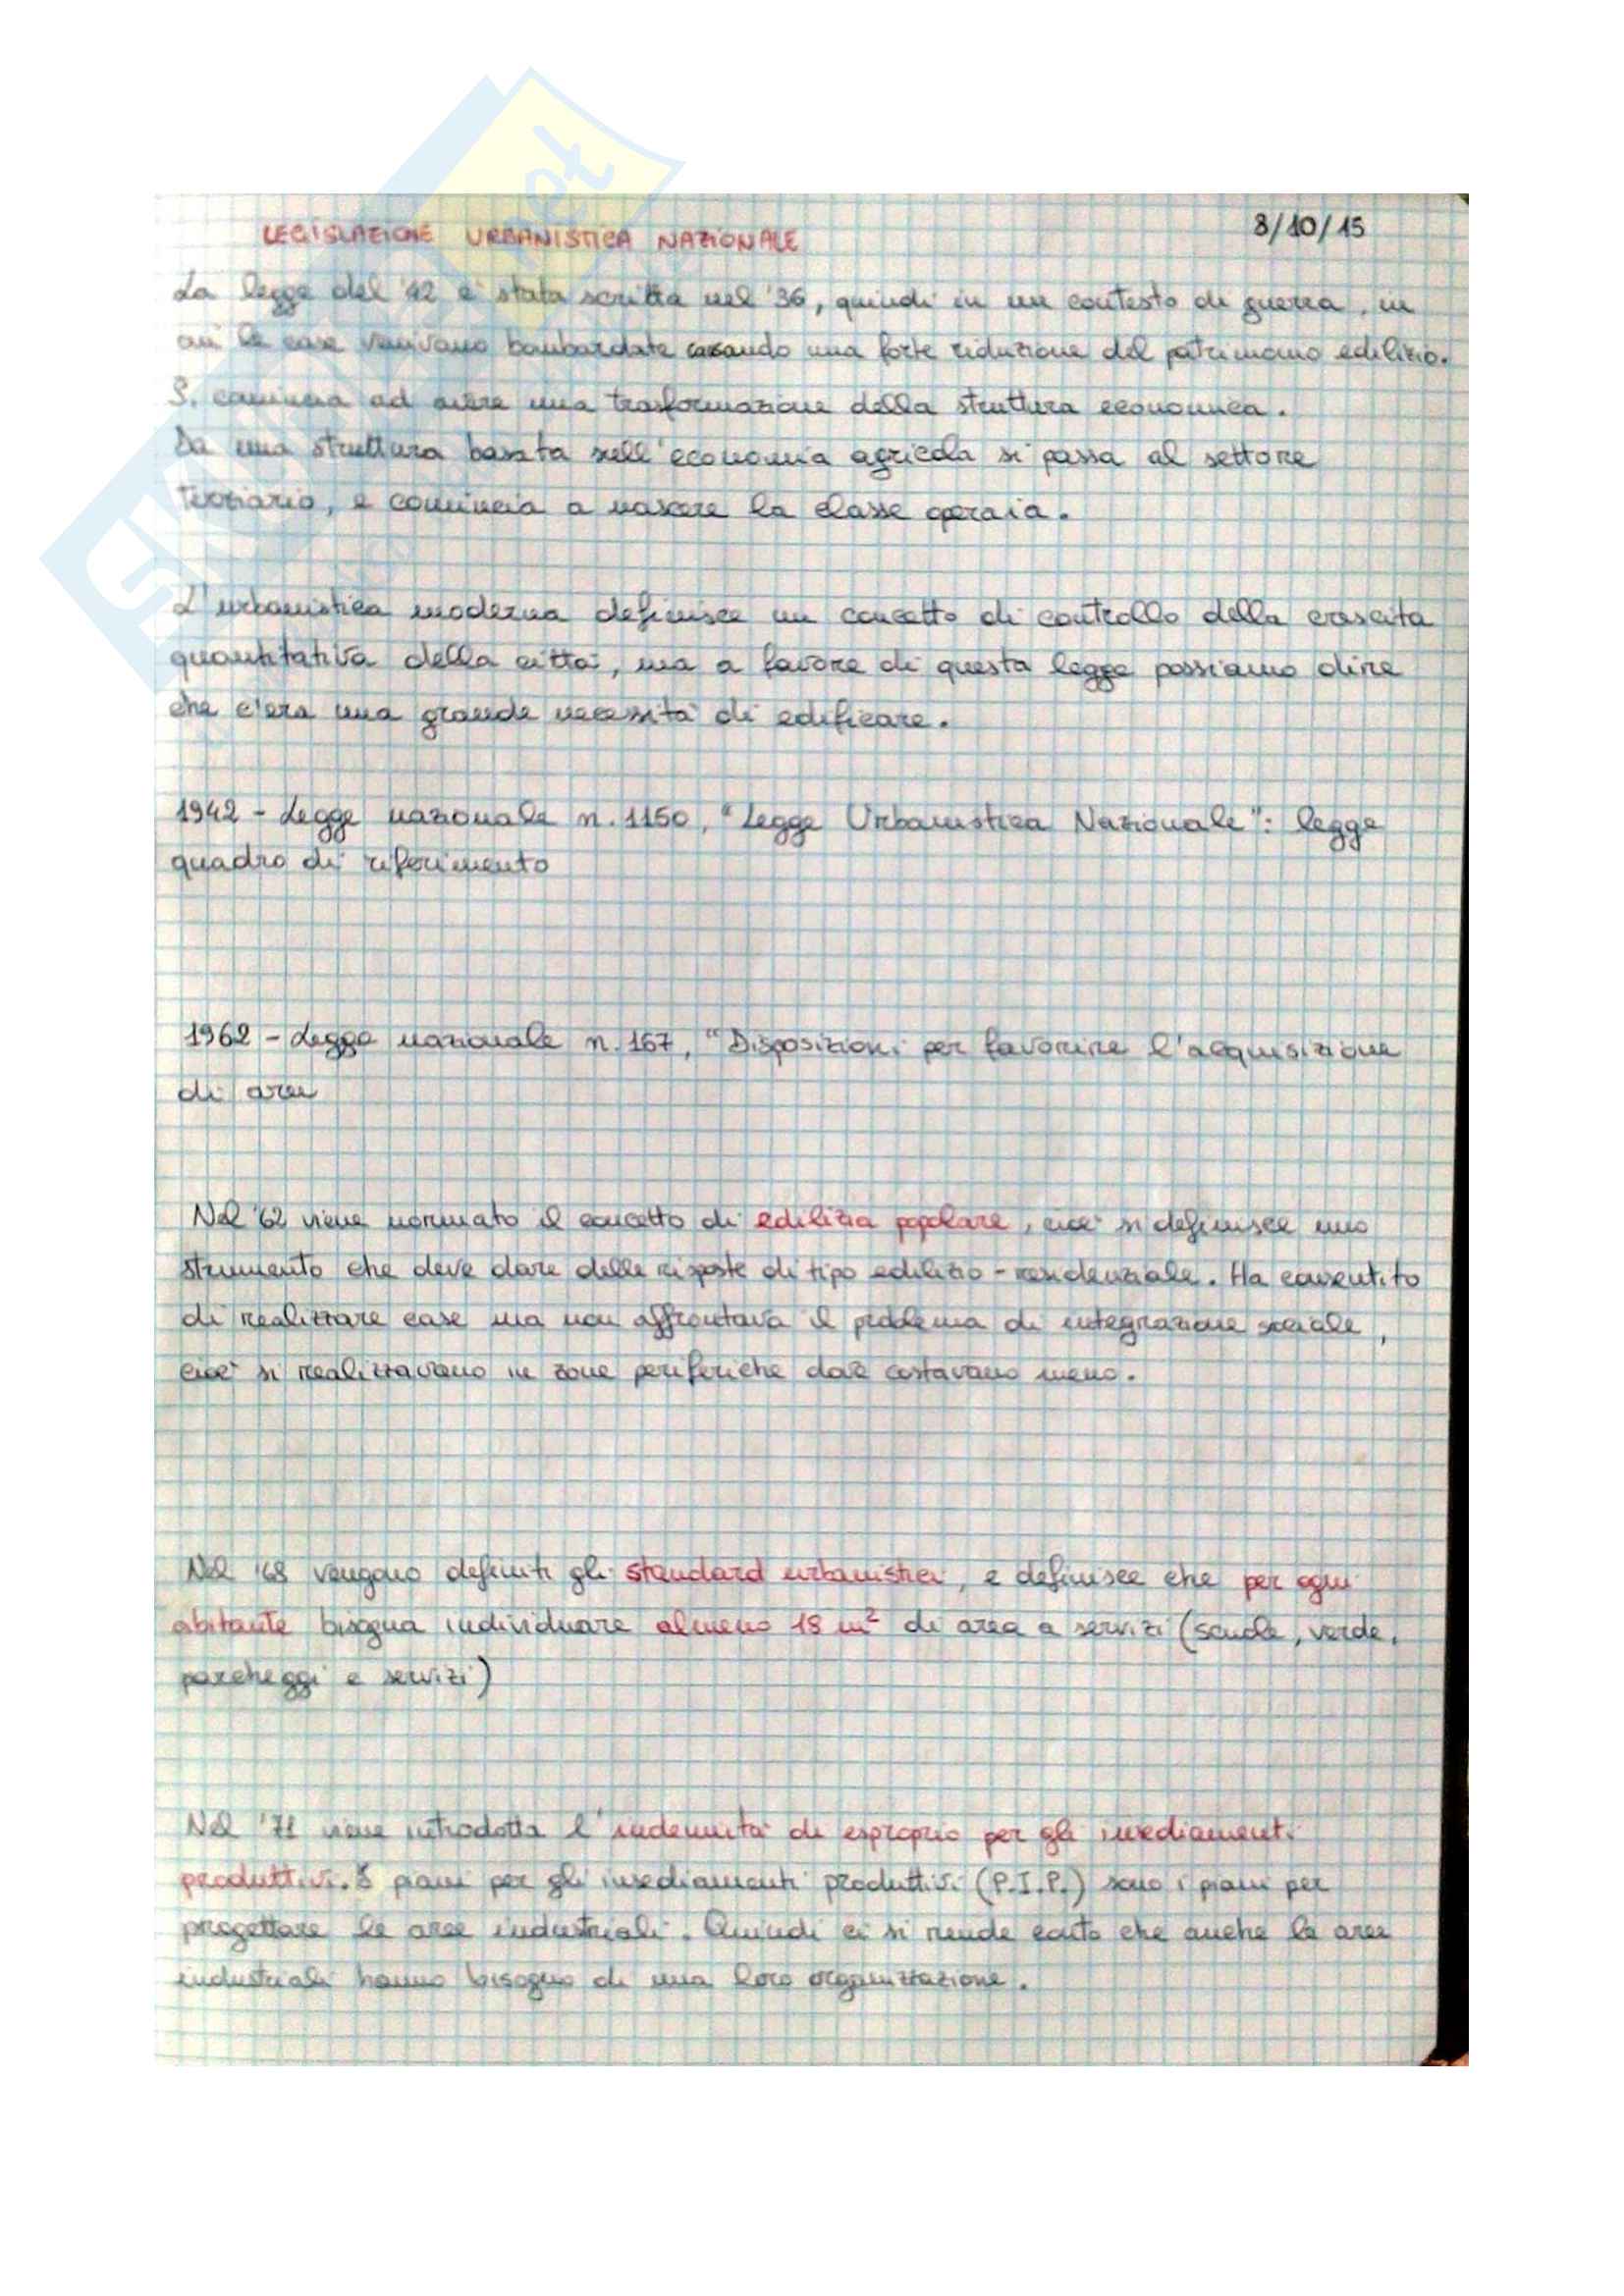 8/10/15
LEGISLAZIONE URBANISTICA NAZIONALE
La legge del '42 è stata scritta nel '36, quindi in un contesto di guerra, in
cui le case venivano bombardate causando una forte riduzione del patrimonio edilizio.
Si comincia ad avere una trasformazione della struttura economica.
Da una struttura basata sull'economia agricola si passa al settore
terziario, e comincia a nascere la classe operaia.
L'urbanistica moderna definisce un concetto di controllo della crescita
quantitativa della città, ma a favore di questa legge possiamo dire
che c'era una grande necessità di edificare.
1942 - Legge nazionale n. 1150, "Legge Urbanistica Nazionale": legge
quadro di riferimento
1962 - Legge nazionale n. 167, "Disposizioni per favorire l'acquisizione
di aree
Nel '62 viene normato il concetto di edilizia popolare, cioè si definisce uno
strumento che deve dare delle risposte di tipo edilizio - residenziale. Ha consentito
di realizzare case ma non affrontava il problema di integrazione sociale,
cioè si realizzavano in zone periferiche dove costavano meno.
Nel '68 vengono definiti gli standard urbanistici, e definisce che per ogni
abitante bisogna individuare almeno 18 m² di area a servizi (scuole, verde,
parcheggi e servizi)
Nel '71 viene introdotta l'indennità di esproprio per gli insediamenti
produttivi. I piani per gli insediamenti produttivi (P.I.P.) sono i piani per
progettare le aree industriali. Quindi ci si rende conto che anche le aree
industriali hanno bisogno di una loro organizzazione.